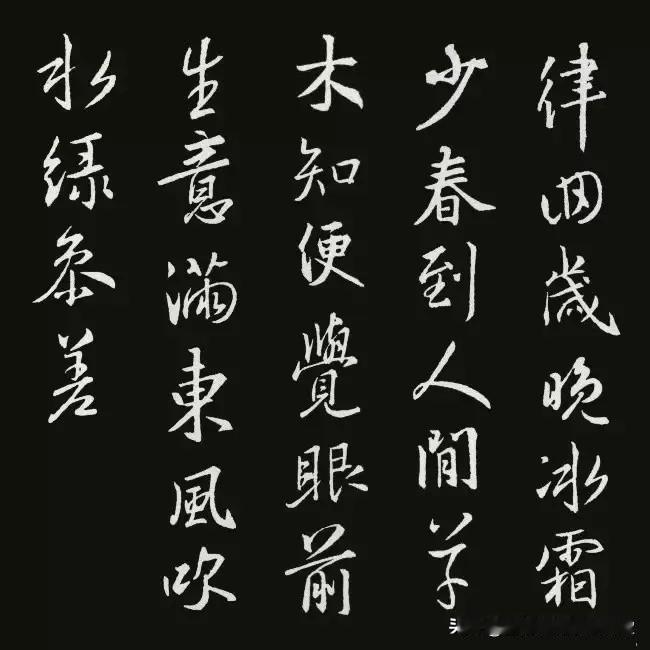 律回歲晚冰霜
少春到人間草
木知便覺眼前
生意滿東風吹
水綠參差
头